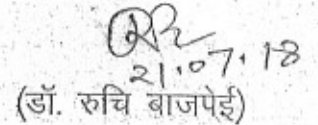 21.07.18
(डॉ. रुचि बाजपेई)